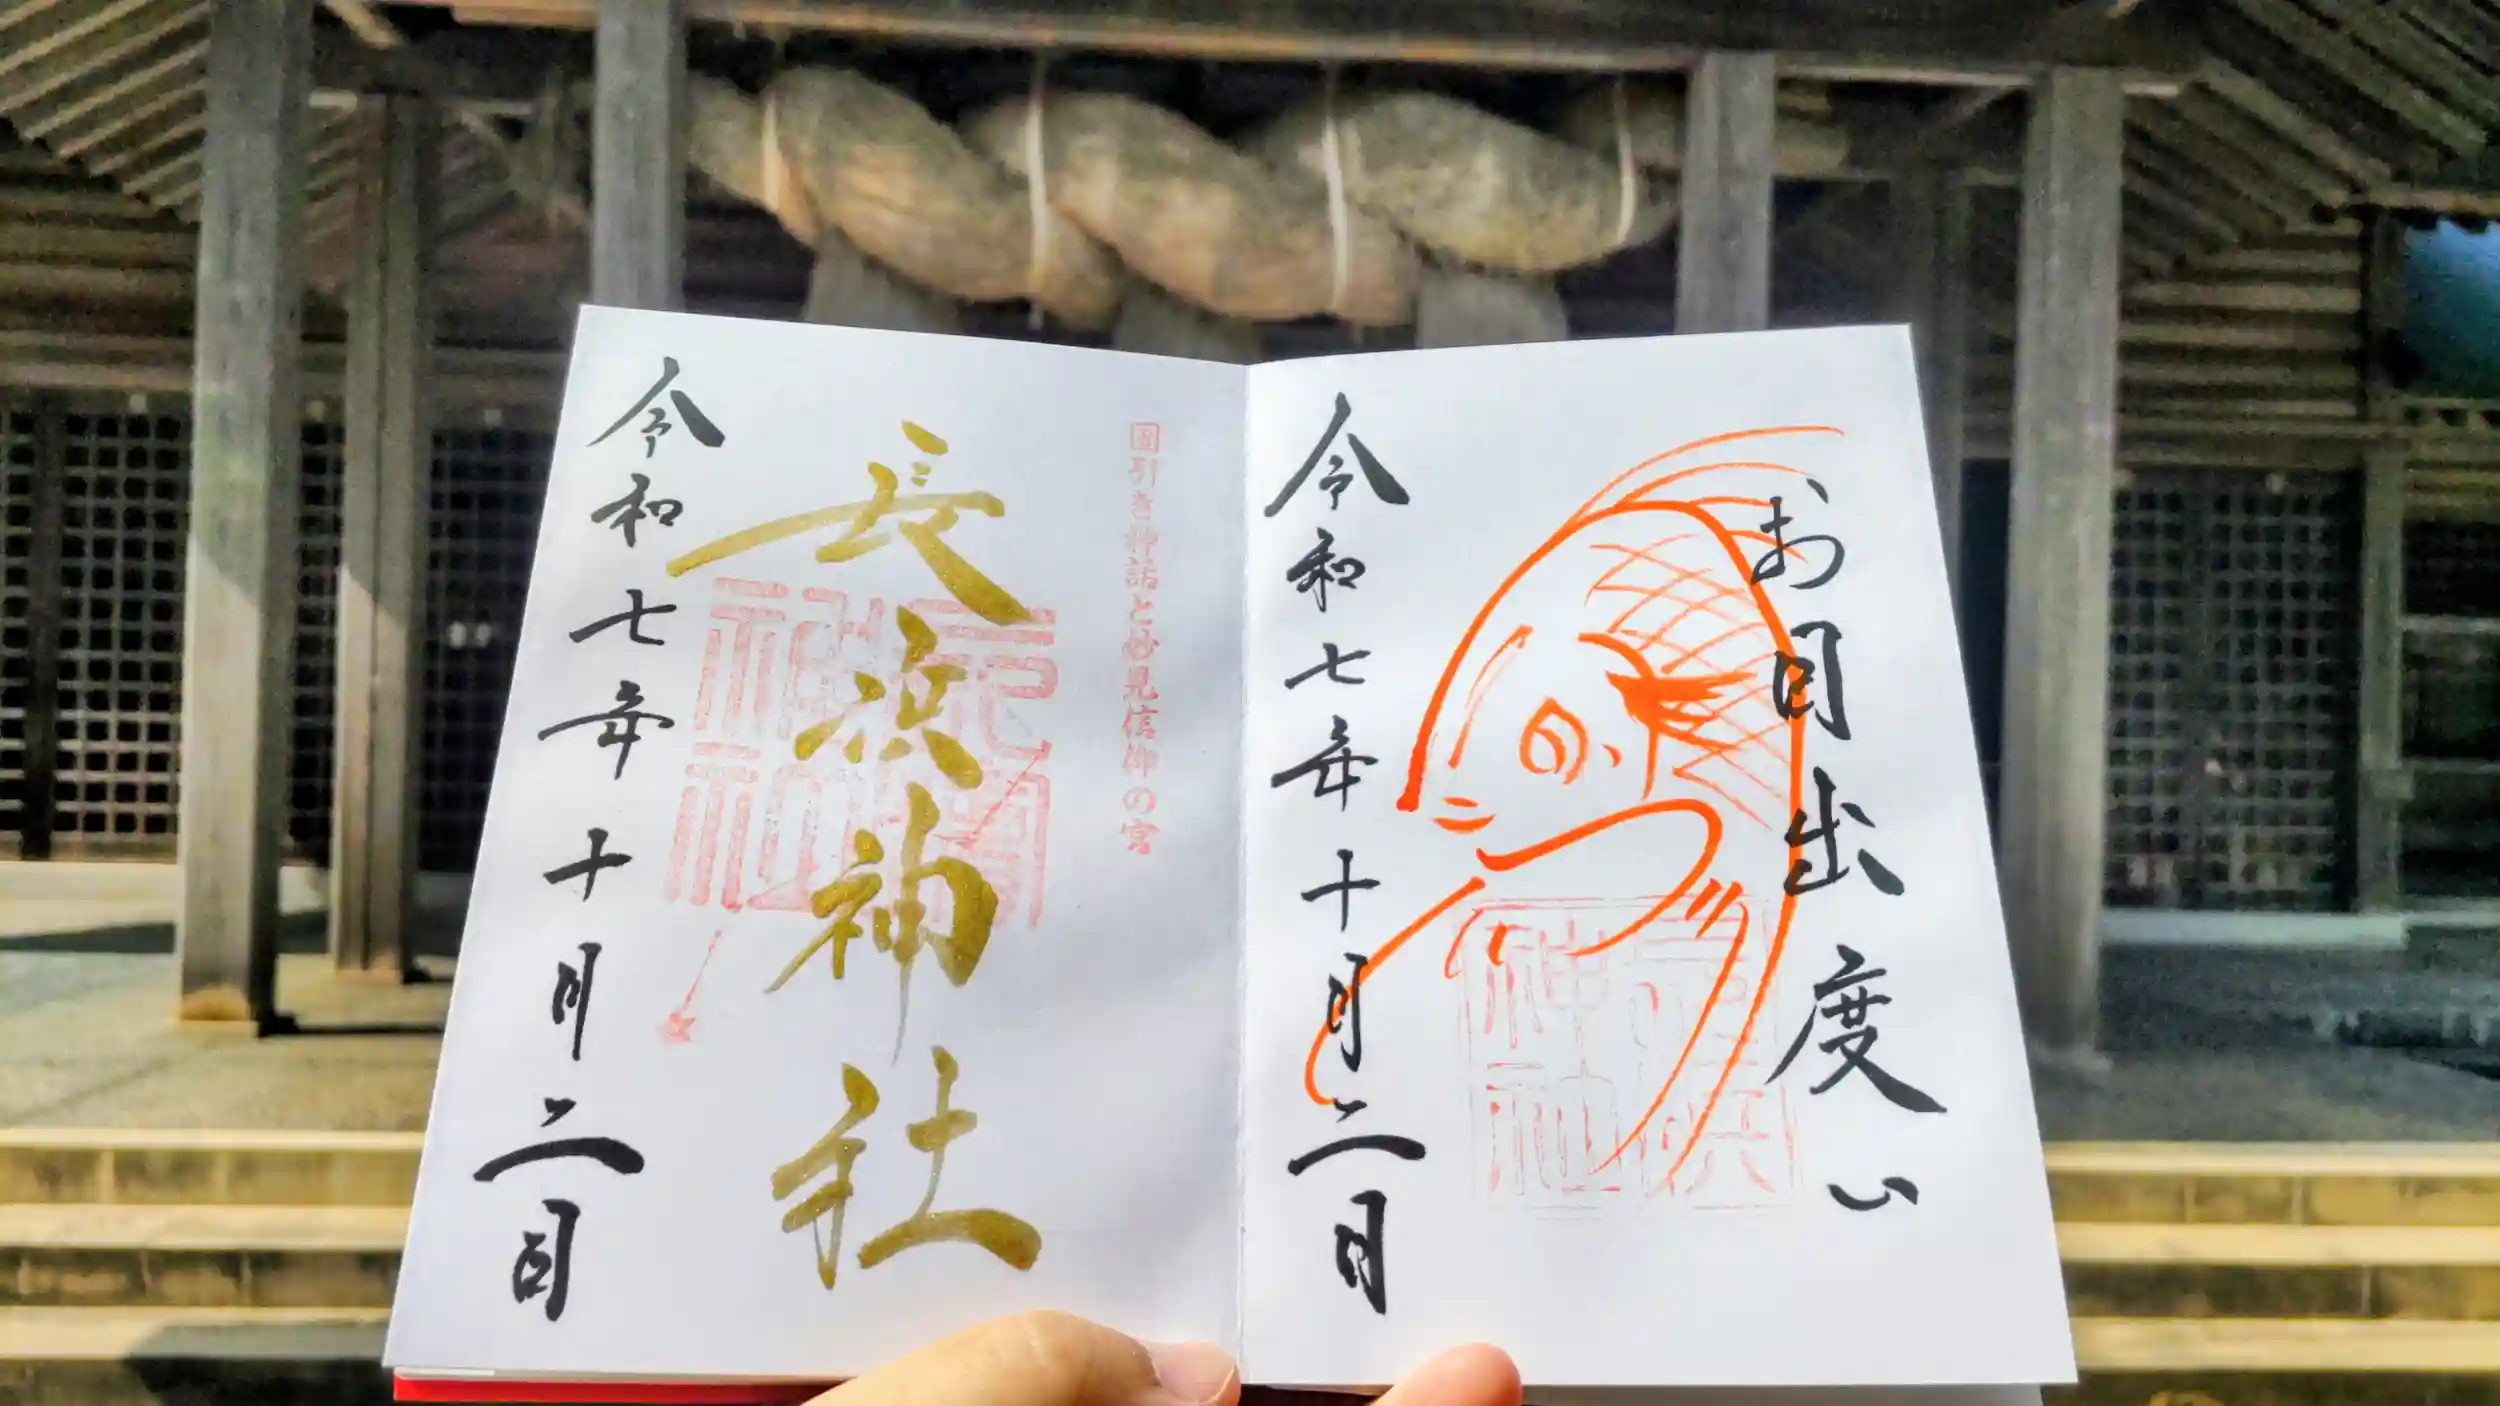 お目出度い
令和七年十月二日
國引き神話と妙見信仰の宮
長浜神社
令和七年十月二日